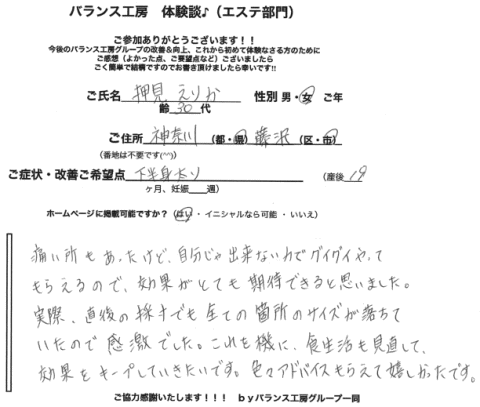 バランス工房 体験談♪（エステ部門）
ご参加ありがとうございます！！
今後のバランス工房グループの改善＆向上、これから初めて体験なさる方のために
ご感想（よかった点、ご要望点など）ございましたら
ごく簡単で結構ですのでお書き頂けましたら幸いです!!
ご氏名 押見 えりか 性別 男・女 ご年
齢 30 代
ご住所 神奈川 （都・県） 藤沢 （区・市）
（番地は不要です(^^)）
ご症状・改善ご希望点 下半身太り （産後 19
ヶ月、妊娠 週）
ホームページに掲載可能ですか？（はい ・ イニシャルなら可能 ・ いいえ）
痛い所もあったけど、自分じゃ出来ないのでグイグイやって
もらえるので、効果がとても期待できると思いました。
実際、直後の採寸でも全ての箇所のサイズが落ちて
いたので感激でした。これを機に、食生活も見直して、
効果をキープしていきたいです。色々アドバイスもらえて嬉しかったです。
ご協力感謝いたします！！！ ｂｙバランス工房グループ一同